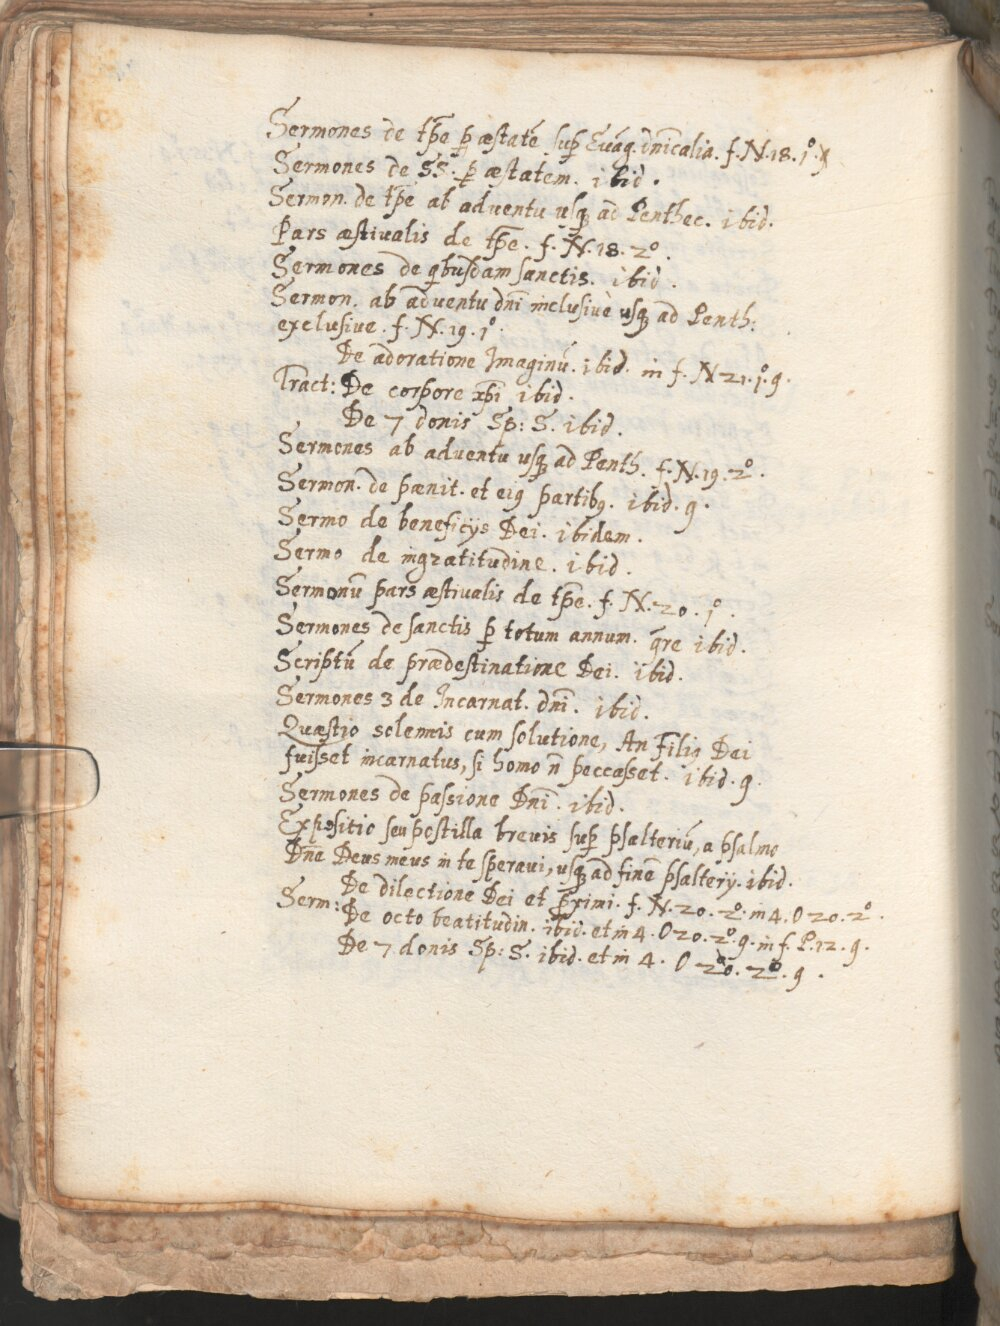 Sermones de tp̄e ꝑ æstatē sup̱ Euāg. dn̄icalia. f. N. 18. 1º.
Sermones de SS. ꝑ æstatem. ibid.
Sermon. de tp̄e ab adventu usq̧ ad Penthec. ibid.
Pars æstivalis de tp̄e. f. N. 18. 2º.
Sermones de qbusdam sanctis. ibid.
Sermon. ab adventu dn̄i inclusivè usq̧ ad Penth:
exclusive. f. N. 19. 1º.
De adoratione Imaginū. ibid. in f. N 21. 1º. 9.
Tract: De corpore xp̄i ibid.
De 7 donis Sp: S. ibid.
Sermones ab adventu usq̧ ad Penth. f. N. 19. 2º.
Sermon. de pænit. et eiꝰ partibꝰ. ibid. 9.
Sermo de beneficijs Dei. ibidem.
Sermo de ingratitudine. ibid.
Sermonū pars æstivalis de tp̄e. f. N. 20. 1º.
Sermones de sanctis ꝑ totum annum. q̄re ibid.
Scriptū de prædestinatione Dei. ibid.
Sermones 3 de Incarnat. dn̄i. ibid.
Quæstio solennis cum solutione, An Filiꝰ Dei
fuisset incarnatus, si homo n̄ peccasset. ibid. 9.
Sermones de passione Dn̄i. ibid.
Expositio seu postilla brevis sup̱ psalteriū, a psalmo
Dn̄e Deus meus in te speravi, usq̧ ad finē psalterij. ibid.
De dilectione Dei et ꝓximi. f. N. 20. 2º. in 4. O 20. 2º.
Serm: De octo beatitudin. ibid. et in 4. O 20. 2º. 9. in f. P. 12. 9.
De 7 donis Sp: S. ibid. et in 4. O 20. 2º. 9.